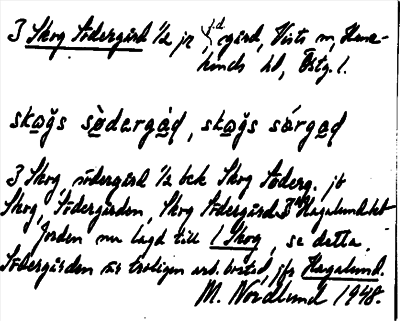 3 Skog Södergård 1/2 jr gård, Vists sn, Hane-
kinds hd, Östg. l.
skoğs sö̀dərgàd, skoğs sǿrgad
3 Skog södergård 1/2 bek Skog Söderg. jb
Skog, Södergården, Skog Södergård 3 Hagalund kb
Jorden nu lagd till 1 Skog, se detta.
Södergården är troligen avs. bostad, jfr Hagalund.
M. Nordlund 1948.